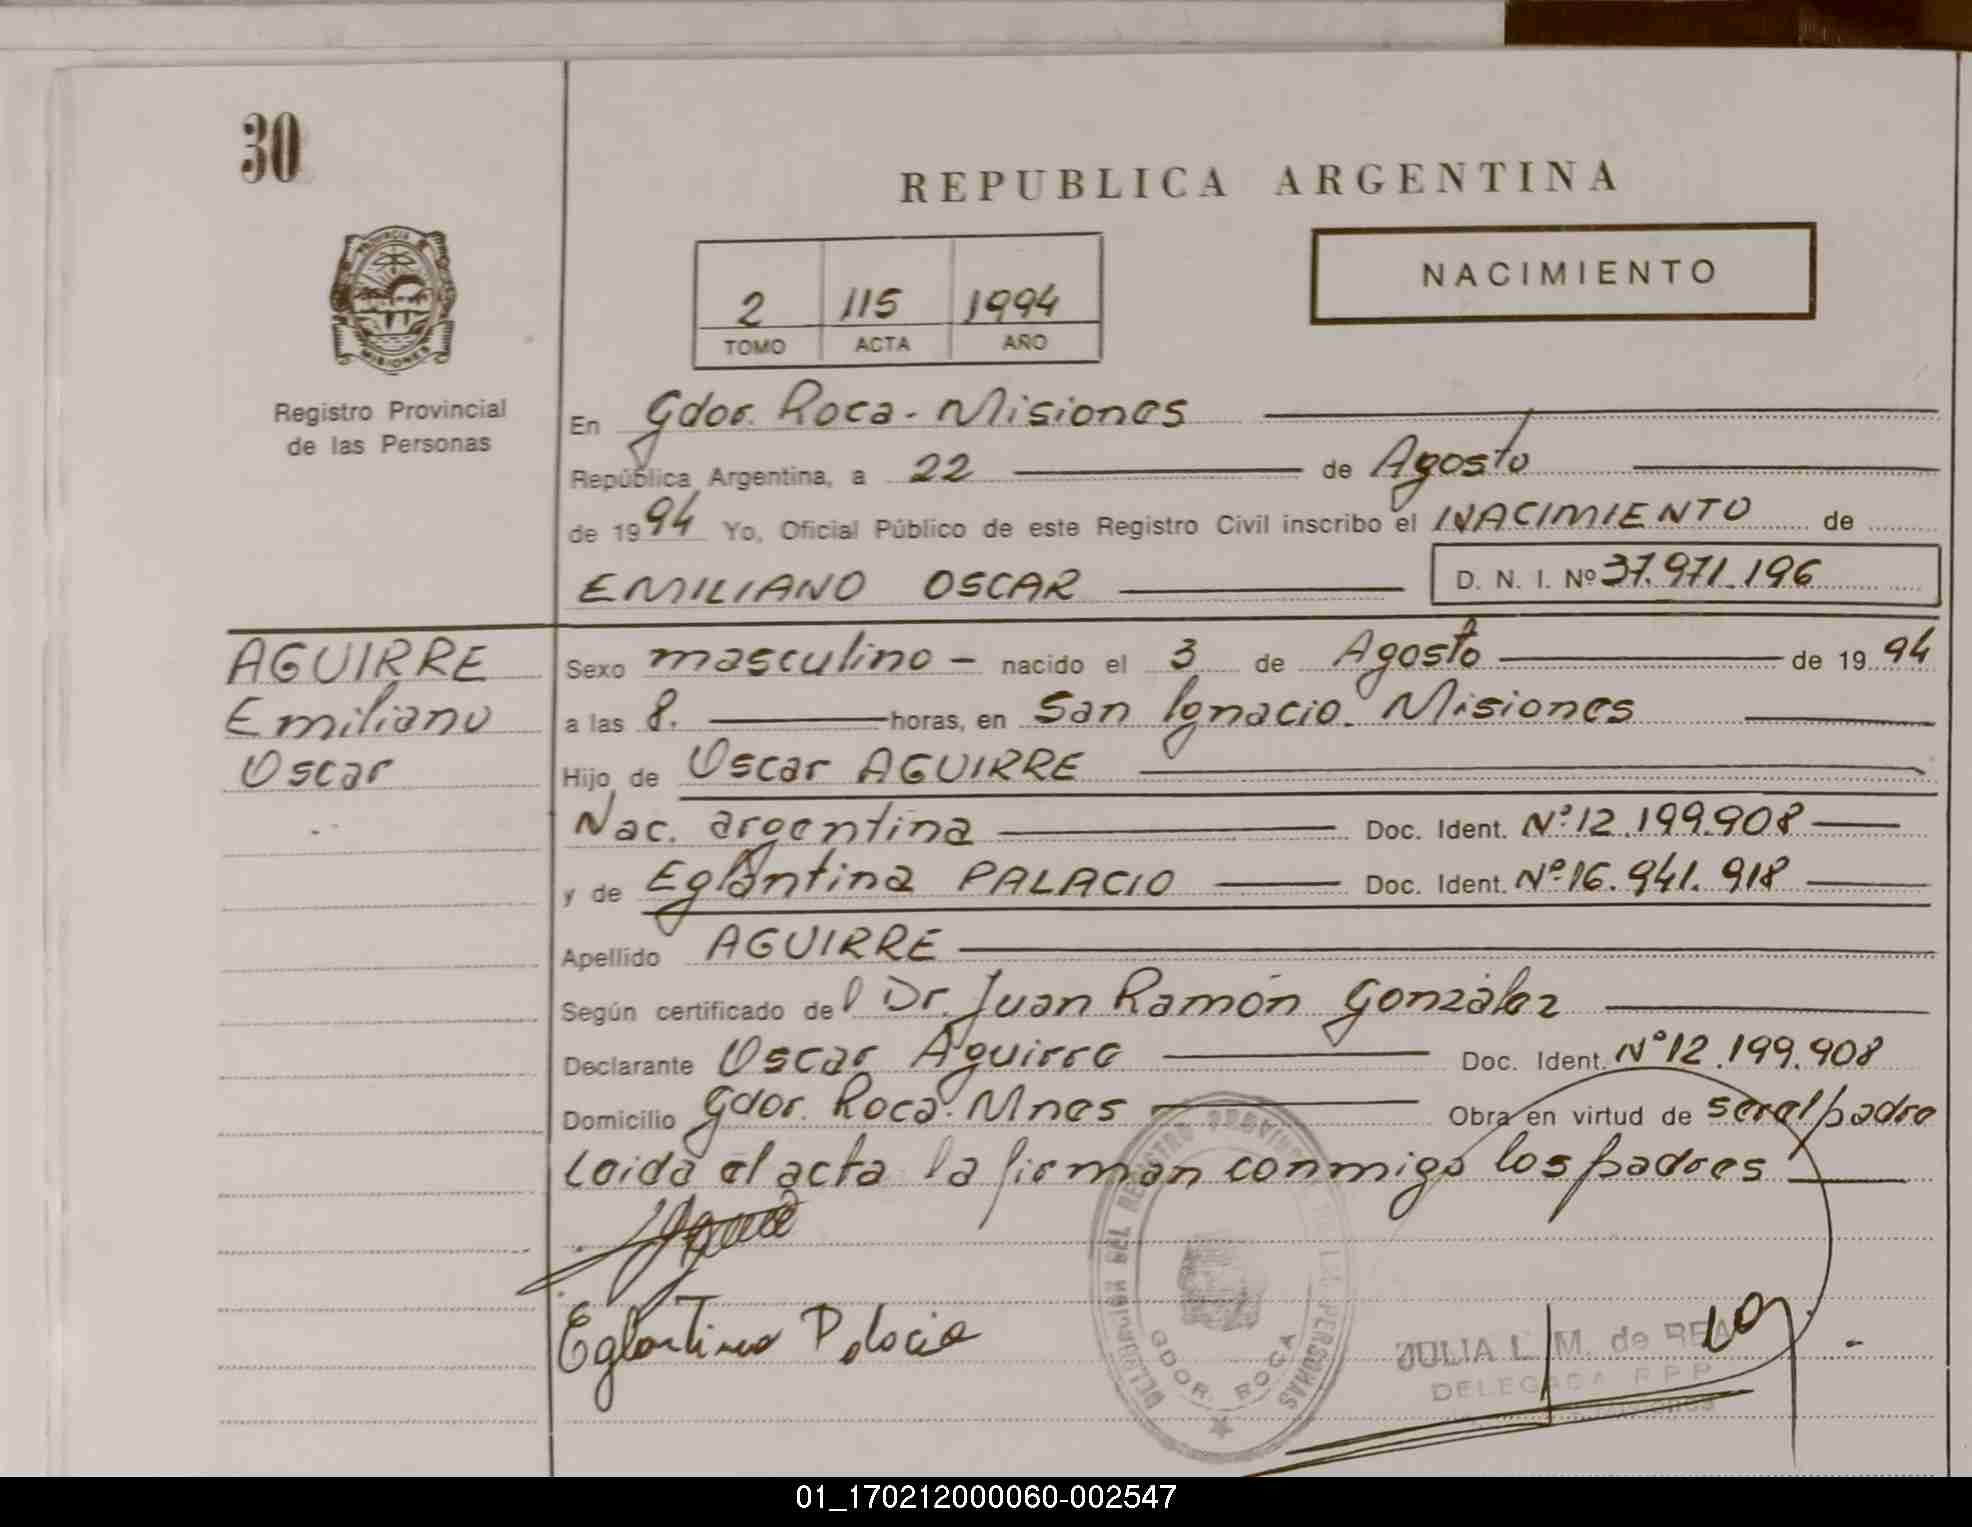 30
REPUBLICA ARGENTINA
NACIMIENTO
2 115 1994
TOMO ACTA AÑO
PROVINCIA DE MISIONES
Registro Provincial
de las Personas
En Gdor. Roca - Misiones
República Argentina, a 22 de Agosto
de 1994 Yo, Oficial Público de este Registro Civil inscribo el NACIMIENTO de
EMILIANO OSCAR D. N. I. Nº 37.971.196
AGUIRRE
Emiliano
Oscar
Sexo masculino - nacido el 3 de Agosto de 1994
a las 8. horas, en San Ignacio. Misiones
Hijo de Oscar AGUIRRE
Nac. argentina Doc. Ident. Nº 12.199.908
y de Eglantina PALACIO Doc. Ident. Nº 16.941.918
Apellido AGUIRRE
Según certificado del Dr. Juan Ramón González
Declarante Oscar Aguirre Doc. Ident. Nº 12.199.908
Domicilio Gdor. Roca. Mnes Obra en virtud de ser el padre
Leida el acta la firman conmigo los padres
Eglantina Palacio
DELEGACION DEL REGISTRO PROVINCIAL DE LAS PERSONAS
GDOR. ROCA
JULIA L. M. de REA
DELEGADA R P P
01_170212000060-002547